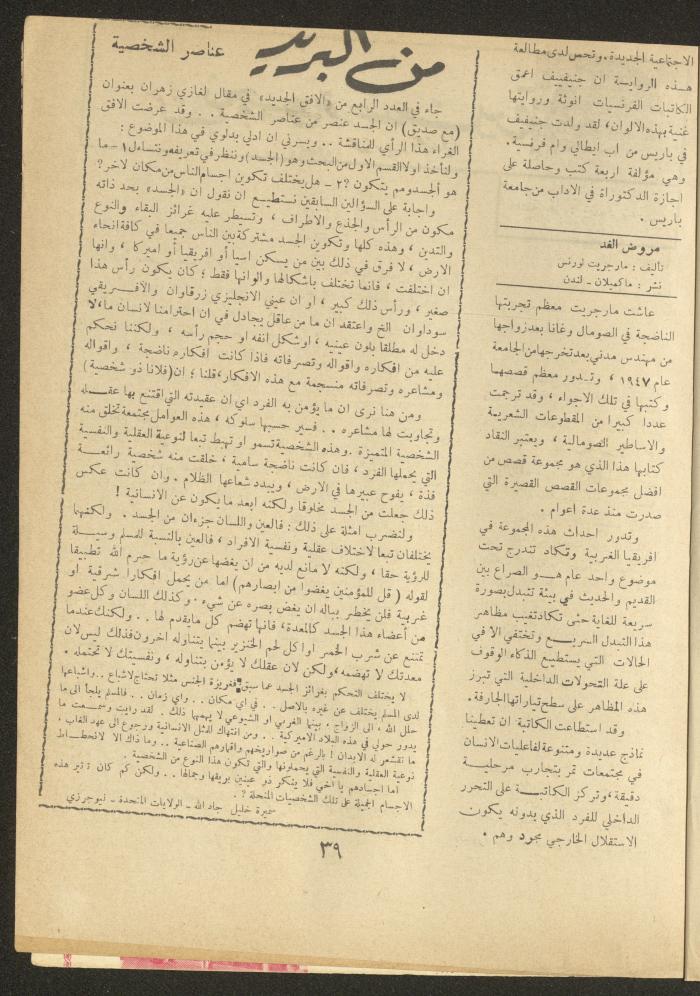 الاجتماعية الجديدة. وتحس لدى مطالعة
هذه الرواية ان جنيفييف اعمق
الكاتبات الفرنسيات انوثة وروايتها
غنية بهذه الالوان، لقد ولدت جنيفيف
في باريس من اب ايطالي وام فرنسية.
وهي مؤلفة اربعة كتب وحاصلة على
اجازة الدكتوراة في الاداب من جامعة
باريس.
مروض الغد
تأليف: مارجريت لورنس
نشر: ماكميلان - لندن
عاشت مارجريت معظم تجربتها
الناضجة في الصومال وغانا بعد زواجها
من مهندس مدني بعد تخرجها من الجامعة
عام ١٩٤٧، وتدور معظم قصصها
وكتبها في تلك الاجواء، وقد ترجمت
عددا كبيرا من المقطوعات الشعرية
والاساطير الصومالية، ويعتبر النقاد
كتابها هذا الذي هو مجموعة قصص من
افضل مجموعات القصص القصيرة التي
صدرت منذ عدة اعوام.
وتدور احداث هذه المجموعة في
افريقيا الغربية وتكاد تندرج تحت
موضوع واحد عام هو الصراع بين
القديم والحديث في بيئة تتبدل بصورة
سريعة للغاية حتى تكاد تغيب مظاهر
هذا التبدل السريع وتختفي الا في
الحالات التي يستطيع الذكاء الوقوف
على علة التحولات الداخلية التي تبرز
هذه المظاهر على سطح تياراتها الجارفة.
وقد استطاعت الكاتبة ان تعطينا
نماذج عديدة ومتنوعة لفاعليات الانسان
في مجتمعات تمر بتجارب مرحلية
دقيقة، وتركز الكاتبة على التحرر
الداخلي للفرد الذي بدونه يكون
الاستقلال الخارجي مجرد وهم.
من البريد
عناصر الشخصية
جاء في العدد الرابع من «الافق الجديد» في مقال لغازي زهران بعنوان
(مع صديق) ان الجسد عنصر من عناصر الشخصية.. وقد عرضت الافق
الغراء هذا الرأي للمناقشة.. ويسرني ان ادلي بدلوي في هذا الموضوع:
ولنأخذ اولا القسم الاول من البحث وهو (الجسد) وننظر في تعريفه ونتساءل ١- ما
هو الجسد ومم يتكون؟ ٢- هل يختلف تكوين اجسام الناس من مكان لاخر؟
واجابة على السؤالين السابقين نستطيع ان نقول ان «الجسد» بحد ذاته
مكون من الرأس والجذع والاطراف، وتسيطر عليه غرائز البقاء والنوع
والتدين، وهذه كلها وتكوين الجسد مشتركة بين الناس جميعا في كافة انحاء
الارض، لا فرق في ذلك بين من يسكن اسيا أو افريقيا أو اميركا، وانها
ان اختلفت، فانما تختلف باشكالها والوانها فقط؛ كان يكون رأس هذا
صغير، ورأس ذلك كبير، او ان عيني الانجليزي زرقاوان والافريقي
سوداوان الخ واعتقد ان ما من عاقل يجادل في ان احترامنا لانسان ما، لا
دخل له مطلقا بلون عينيه، او شكل انفه او حجم رأسه، ولكننا نحكم
عليه من افكاره واقواله وتصرفاته فاذا كانت افكاره ناضجة، واقواله
ومشاعره وتصرفاته منسجمة مع هذه الافكار، قلنا؛ ان (فلانا ذو شخصية)
ومن هنا نرى ان ما يؤمن به الفرد اي ان عقيدته التي اقتنع بها عقله
وتجاوبت لها مشاعره.. فسير حسبها سلوكه، هذه العوامل مجتمعة تخلق منه
الشخصية المتميزة. وهذه الشخصية تسمو او تهبط تبعا لنوعية العقلية والنفسية
التي يحملها الفرد، فان كانت ناضجة سامية، خلقت منه شخصية رائعة
فذة، يفوح عبيرها في الارض، ويبدد شعاعها الظلام. وان كانت عكس
ذلك جعلت من الجسد مخلوقا ولكنه ابعد ما يكون عن الانسانية!
ولنضرب امثلة على ذلك: فالعين واللسان جزءان من الجسد. ولكنهما
يختلفان تبعا لاختلاف عقلية ونفسية الافراد، فالعين بالنسبة للمسلم وسيلة
للرؤية حقا، ولكنه لا مانع لديه من ان يغضها عن رؤية ما حرم الله تطبيقا
لقوله (قل للمؤمنين يغضوا من ابصارهم) اما من يحمل افكارا شرقية او
غربية فلن يخطر بباله ان يغض بصره عن شيء. وكذلك اللسان وكل عضو
من أعضاء هذا الجسد كالمعدة، فانها تهضم كل ما يقدم لها.. ولكنك عندما
تمتنع عن شرب الخمر او اكل لحم الخنزير بينما يتناوله اخرون فذلك ليس لان
معدتك لا تهضمه، ولكن لان عقلك لا يؤمن بتناوله، ونفسيتك لا تحتمله.
لا يختلف التحكم بغرائز الجسد عما سبق فغريزة الجنس مثلا تحتاج لاشباع.. واشباعها
لدى المسلم يختلف عن غيره بالاصل.. في اي مكان.. واي زمان.. فالمسلم يلجأ الى ما
حلل الله، الى الزواج، بينما الغربي او الشيوعي لا يهمهما ذلك. لقد رايت وسمعت ما
يدور حولي في هذه البلاد الاميركية.. ومن انتهاك للمثل الانسانية ورجوع الى عهد الغاب،
ما تقشعر له الابدان! بالرغم من صواريخهم واقمارهم الصناعية.. وما ذاك الا لانحطاط
نوعية العقلية والنفسية التي يحملونها والتي تكون هذا النوع من الشخصية.
أما اجسادهم يا أخي فلا ينكر ذو عينين بريقها وجمالها.. ولكن كم كان تأثير هذه
الاجسام الجميلة على تلك الشخصيات المنحلة؟.
سميرة خليل جاد الله - الولايات المتحدة - نيوجرزي
٣٩